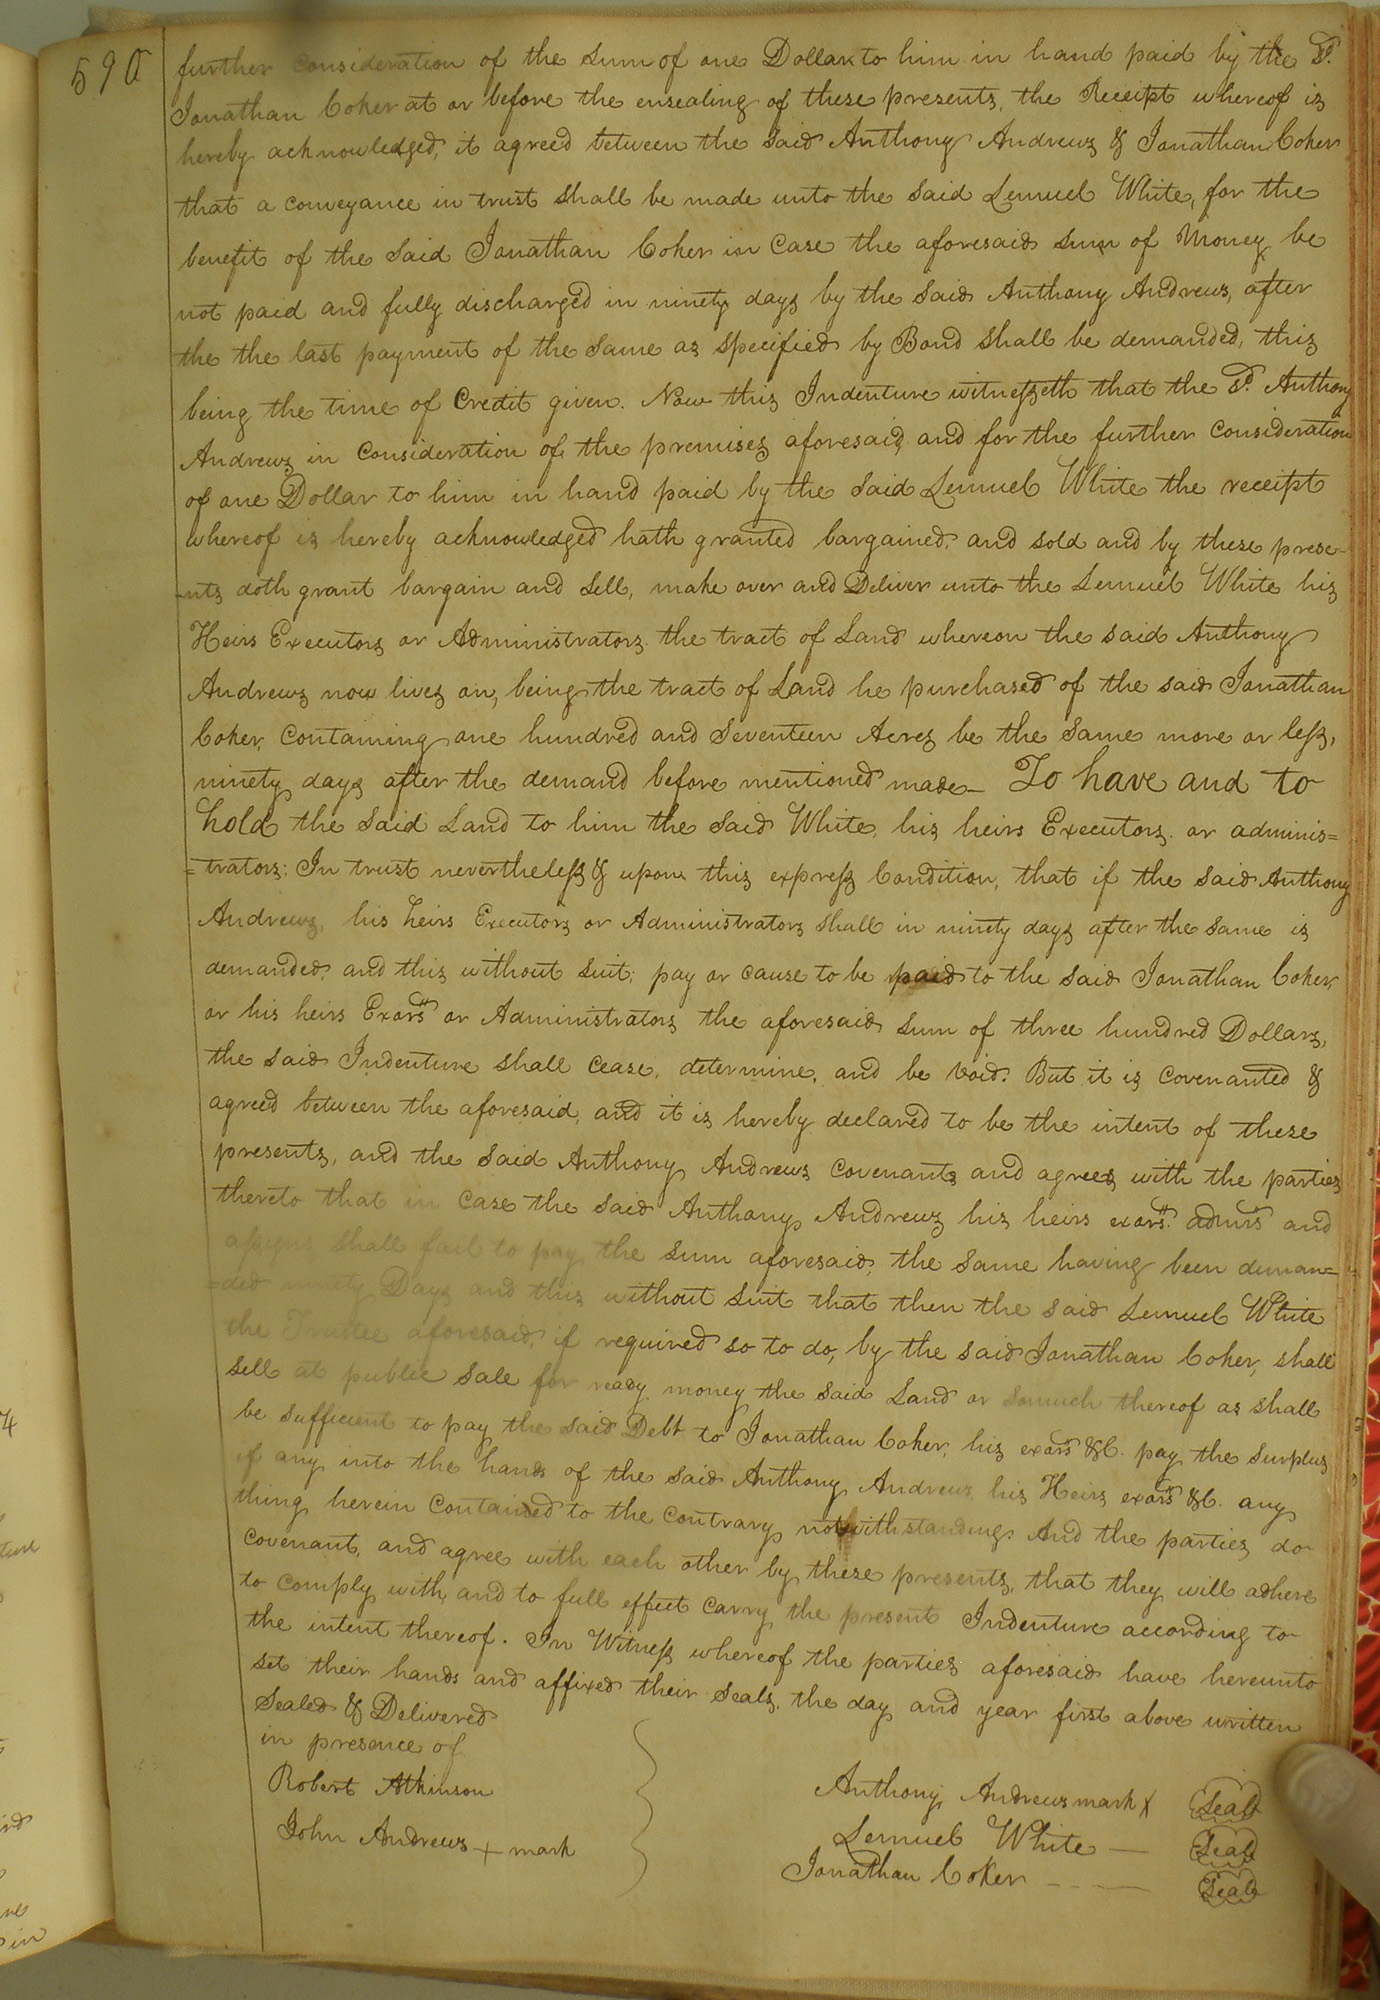 590
further consideration of the Sum of one Dollar to him in hand paid by the Sd.
Jonathan Coker at or before the ensealing of these presents, the Receipt whereof is
hereby acknowledged, it agreed between the Said Anthony Andrews & Jonathan Coker
that a conveyance in trust Shall be made unto the Said Lemuel White, for the
benefit of the Said Jonathan Coker in Case the aforesaid Sum of Money be
not paid and fully discharged in ninety days by the Said Anthony Andrews, after
the the last payment of the Same as Specified by Bond Shall be demanded, this
being the time of Credit given. Now this Indenture witnesseth that the Sd. Anthony
Andrews in Consideration of the premises aforesaid and for the further Consideration
of one Dollar to him in hand paid by the Said Lemuel White the receipt
whereof is hereby acknowledged hath granted bargained, and sold and by these prese-
-nts doth grant bargain and Sell, make over and Deliver unto the Lemuel White his
Heirs Executors or Administrators the tract of Land whereon the said Anthony
Andrews now lives on, being the tract of Land he purchased of the said Jonathan
Coker, Containing one hundred and Seventeen Acres be the Same more or less,
ninety days after the demand before mentioned made - To have and to
hold the Said Land to him the Said White, his heirs Executors. or adminis=
=trators: In trust nevertheless & upon this express Condition, that if the Said Anthony
Andrews, his heirs Executors or Administrators Shall in ninety days after the Same is
demanded, and this without Suit; pay or cause to be paid to the said Jonathan Coker,
or his heirs Exors or Administrators the aforesaid Sum of three hundred Dollars,
the Said Indenture shall cease, determine, and be Void. But it is Covenanted &
agreed between the aforesaid, and it is hereby declared to be the intent of these
presents, and the Said Anthony Andrews Covenants and agrees with the parties
thereto that in Case the Said Anthony Andrews his heirs exors. admrs and
assigns Shall fail to pay the Sum aforesaid, the Same having been deman=
=ded ninety Days and this without Suit that then the said Lemuel White
the Trustee aforesaid, if required so to do, by the said Jonathan Coker, shall
Sell at public Sale for ready money the Said Land or Somuch thereof as Shall
be Sufficient to pay the Said Debt to Jonathan Coker, his exors &C. pay the Surplus
if any into the hands of the Said Anthony Andrews his Heirs exors &C. any
thing herein Contained to the Contrary notwithstanding. And the parties do
Covenant, and agree with each other by these presents, that they will adhere
to Comply with, and to full effect Carry the present Indenture according to
the intent thereof. In Witness whereof the parties aforesaid have hereunto
Set their hands and affixed their Seals, the day and year first above written
Sealed & Delivered
in presence of
Robert Atkinson
Anthony Andrews mark X Seal
John Andrews + mark
Lemuel White - Seal
Jonathan Coker - - - - Seal